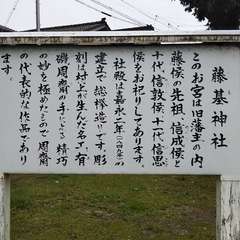 藤基神社
このお宮は旧藩主の内
藤侯の先祖、信成侯と
十代信敦侯、十一代信思
侯をお祀りしてあります。
社殿は嘉永二年(一八四九年)の
建立で総欅造りです。彫
刻は村上が生んだ名工、有
磯周斎の手になり、精巧
の妙を極めたもので周斎
の代表的な作品であり
ます。